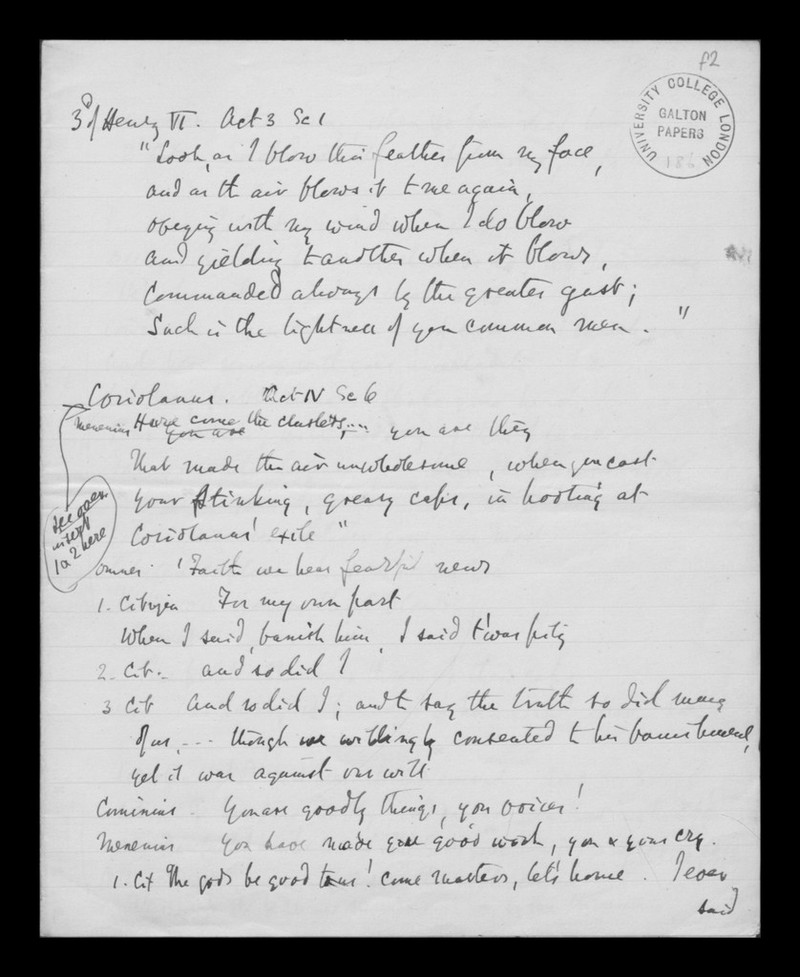 f2
UNIVERSITY COLLEGE LONDON
GALTON
PAPERS
3d Henry VI. Act 3 Sc 1
"Look, as I blow this feather from my face,
and as the air blows it to me again,
obeying with my wind when I do blow
and yielding to another when it blows,
Commanded always by the greater gust;
Such is the lightness of you common men. "
Coriolanus. Act IV Sc 6
Menenius Here come the clusters, .... you are they
you are
that made the air unwholesome, when you cast
your stinking, greasy caps, in hooting at
Coriolanus' exile "
in text
1 or 2 here
omnes. 'Faith we hear fearful news
1. Citizen For my own part
When I said, banish him, I said t'was pity
2. Cit. and so did I
3 Cit And so did I; and to say the truth so did many
of us, --- though we willingly consented to his banishment,
yet it was against our will
Cominius. You are goodly things, you voices!
Menenius You have made good work, you & your cry.
1. Cit The gods be good to us! Come masters, let's home. I ever
said